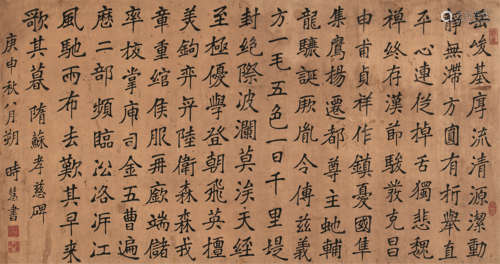 岳峻基厚流清源潔動
靜無滯方圓有折舉直
平心連從掉舌獨悲魏
禪終存漢節駿發克昌
申甫貞祥作鎮憂國隼
集鷹楊遷都尊主虵輔
龍驤誕厥胤令傳茲義
方一毛五色一日千里堤
封絕際波瀾莫涘天經
至極優學登朝飛英擅
美鉤陛衛森森戎
章重綰侯服再端儲
率校掌庫司金五曹遍
歷二部頻臨㳂洛沂江
風馳雨布去歎其早来
歌其暮 隋蘇孝慈碑
庚申秋八月朔 時慧書